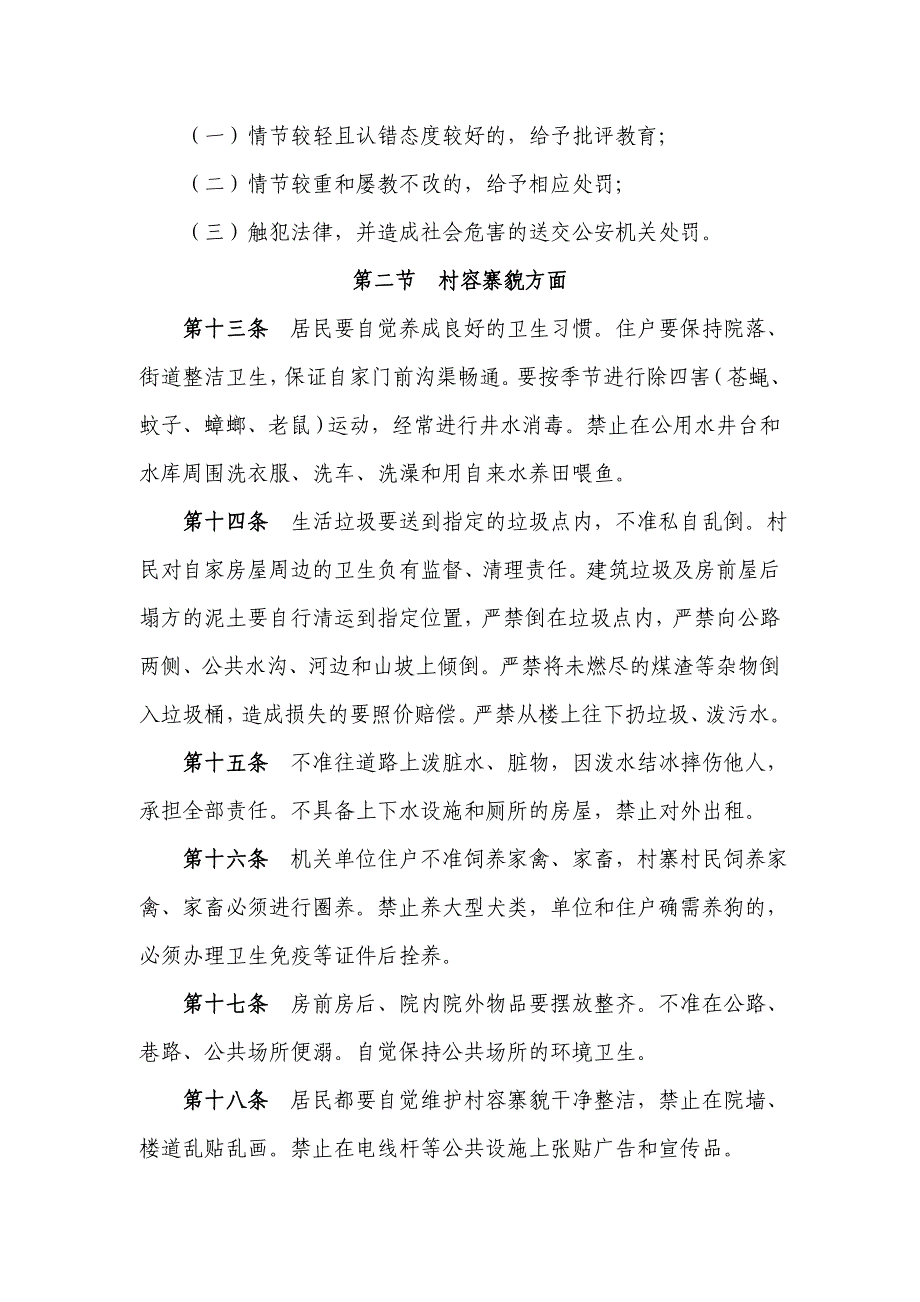 （一）情节较轻且认错态度较好的，给予批评教育；
（二）情节较重和屡教不改的，给予相应处罚；
（三）触犯法律，并造成社会危害的送交公安机关处罚。
第二节　村容寨貌方面
第十三条　居民要自觉养成良好的卫生习惯。住户要保持院落、
街道整洁卫生，保证自家门前沟渠畅通。要按季节进行除四害（苍蝇、
蚊子、蟑螂、老鼠）运动，经常进行井水消毒。禁止在公用水井台和
水库周围洗衣服、洗车、洗澡和用自来水养田喂鱼。
第十四条　生活垃圾要送到指定的垃圾点内，不准私自乱倒。村
民对自家房屋周边的卫生负有监督、清理责任。建筑垃圾及房前屋后
塌方的泥土要自行清运到指定位置，严禁倒在垃圾点内，严禁向公路
两侧、公共水沟、河边和山坡上倾倒。严禁将未燃尽的煤渣等杂物倒
入垃圾桶，造成损失的要照价赔偿。严禁从楼上往下扔垃圾、泼污水。
第十五条　不准往道路上泼脏水、脏物，因泼水结冰摔伤他人，
承担全部责任。不具备上下水设施和厕所的房屋，禁止对外出租。
第十六条　机关单位住户不准饲养家禽、家畜，村寨村民饲养家
禽、家畜必须进行圈养。禁止养大型犬类，单位和住户确需养狗的，
必须办理卫生免疫等证件后拴养。
第十七条　房前房后、院内院外物品要摆放整齐。不准在公路、
巷路、公共场所便溺。自觉保持公共场所的环境卫生。
第十八条　居民都要自觉维护村容寨貌干净整洁，禁止在院墙、
楼道乱贴乱画。禁止在电线杆等公共设施上张贴广告和宣传品。